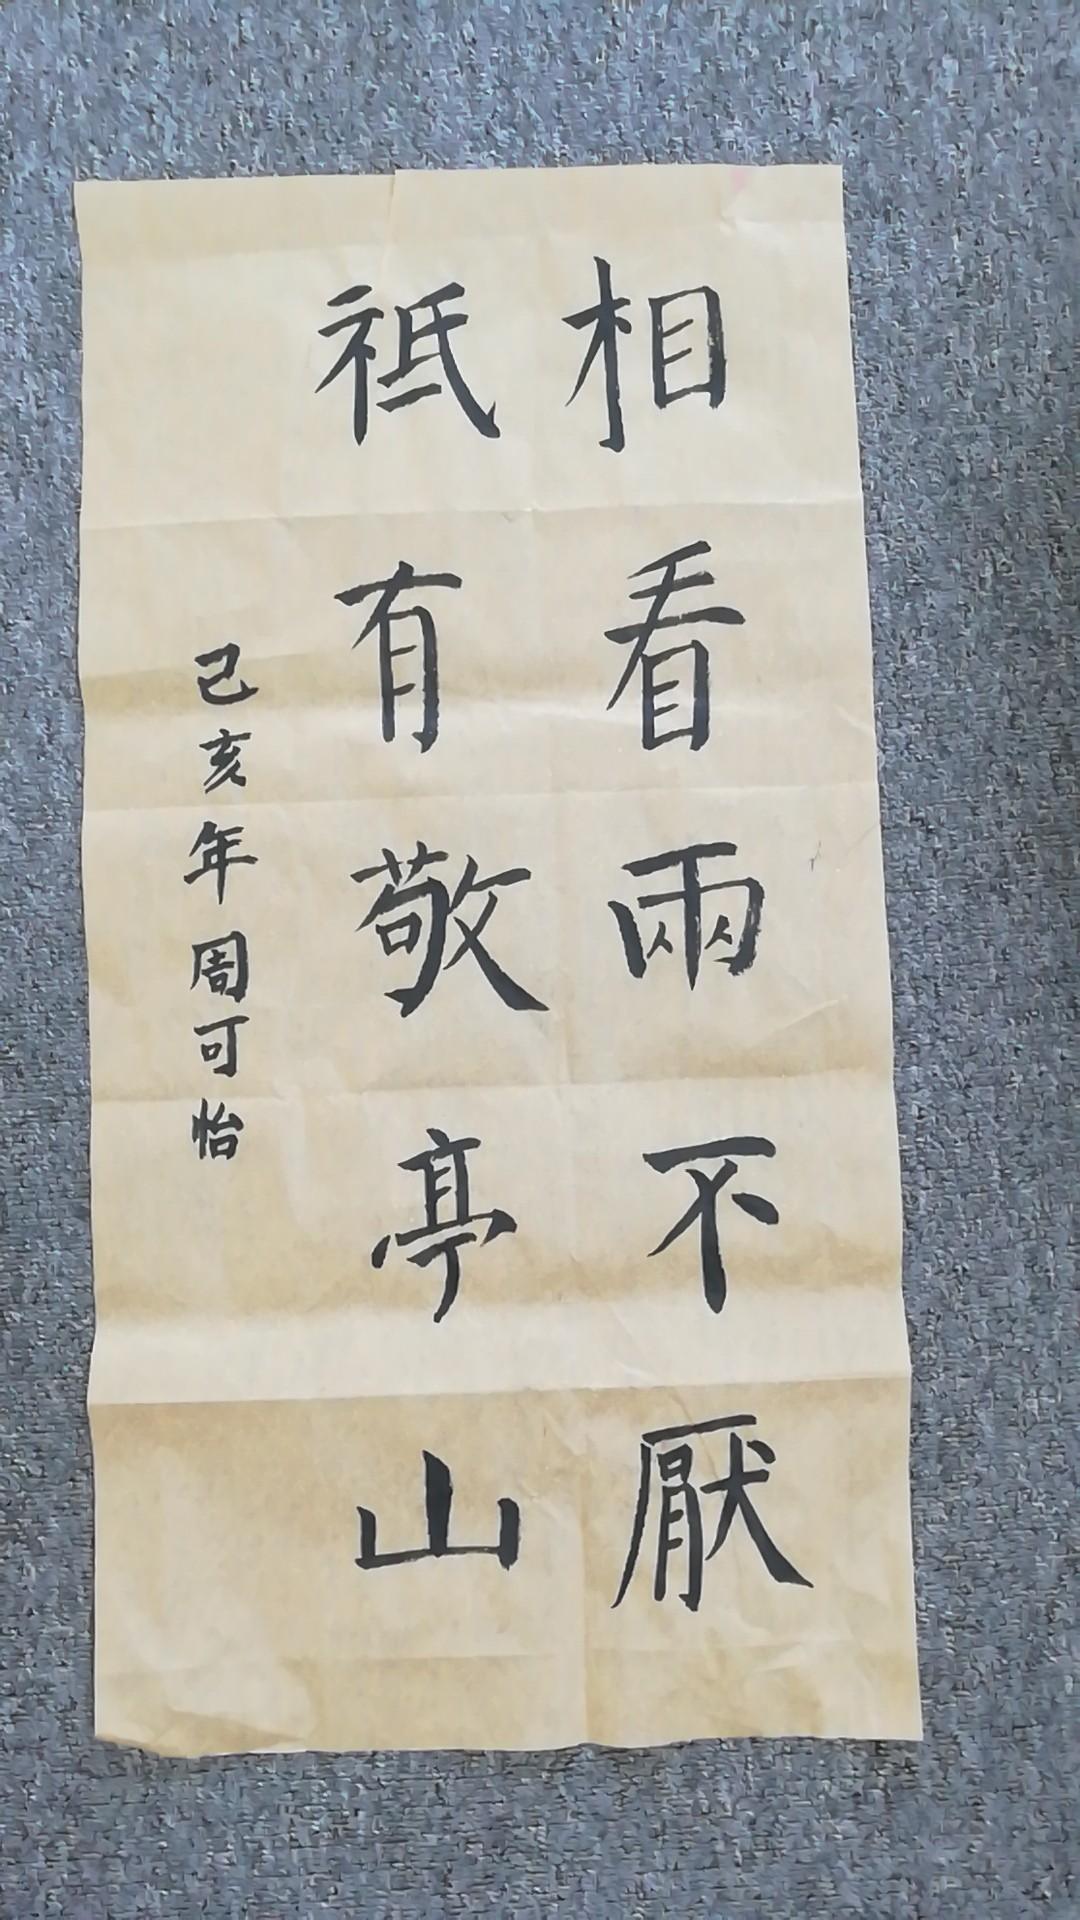 相看兩不厭
祗有敬亭山
己亥年周可怡